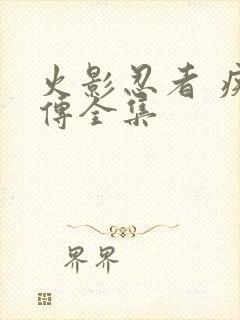 火影忍者 疾
傅全集
界界